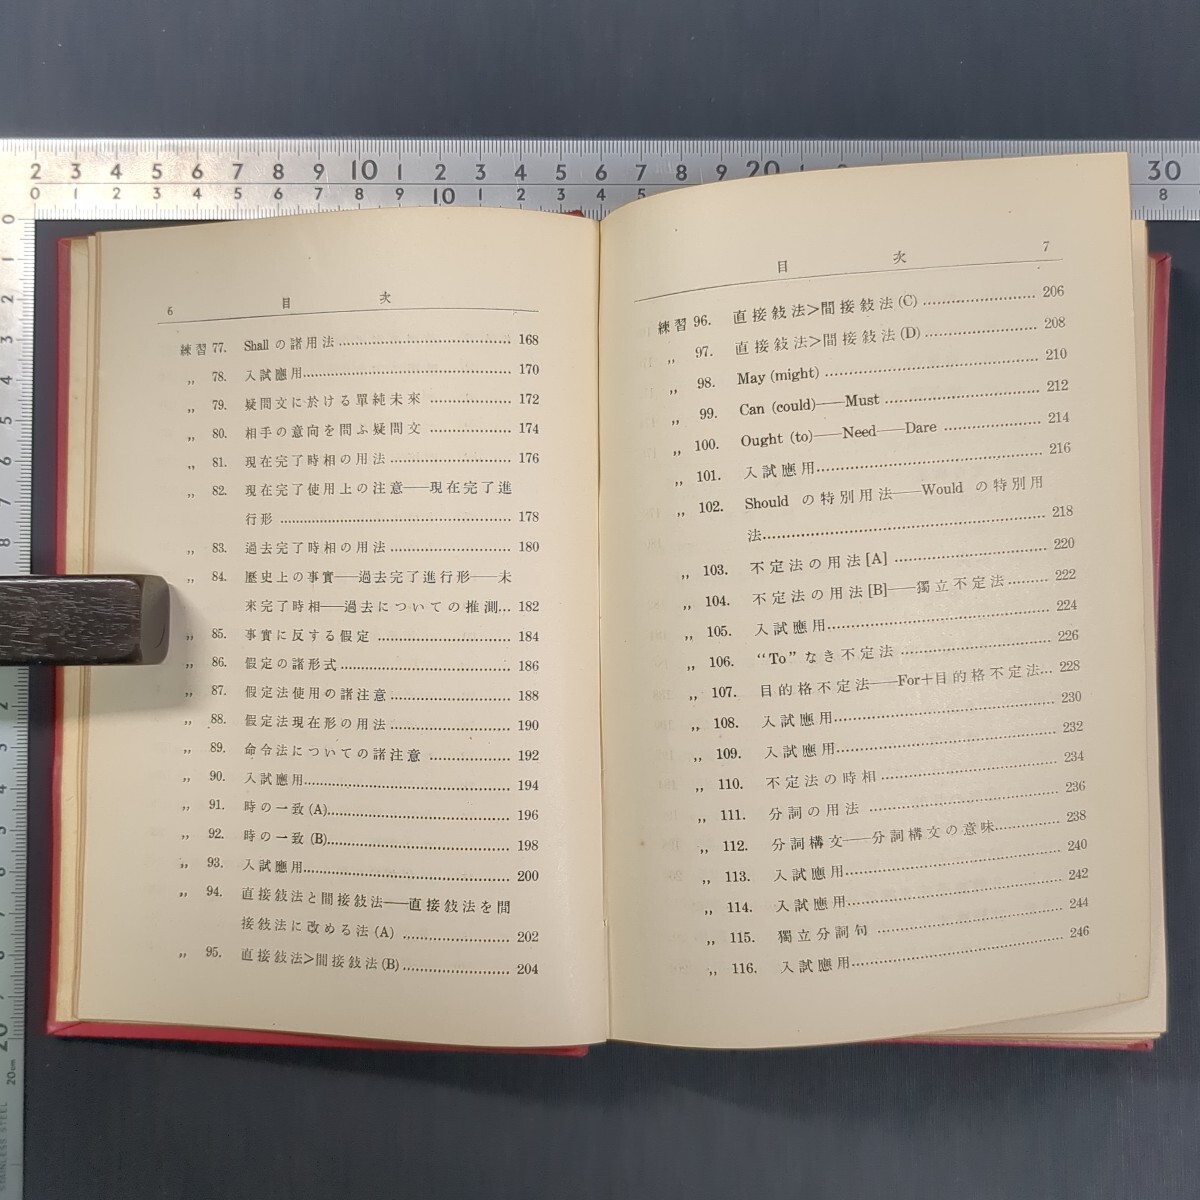 2 3 4 5 6 7 8 9 10 1 2 3 4 5 6 7 8 9 20 1 30
0 1 2 3 4 5 6 7 8 9 10 1 2 3 4 5 8
6 目次
練習 77. Shall の諸用法 168
〃 78. 入試應用 170
〃 79. 疑問文に於ける單純未來 172
〃 80. 相手の意向を問ふ疑問文 174
〃 81. 現在完了時相の用法 176
〃 82. 現在完了使用上の注意——現在完了進
行形 178
〃 83. 過去完了時相の用法 180
〃 84. 歷史上の事實——過去完了進行形——未
來完了時相——過去についての推測 182
〃 85. 事實に反する假定 184
〃 86. 假定の諸形式 186
〃 87. 假定法使用の諸注意 188
〃 88. 假定法現在形の用法 190
〃 89. 命令法についての諸注意 192
〃 90. 入試應用 194
〃 91. 時の一致 (A) 196
〃 92. 時の一致 (B) 198
〃 93. 入試應用 200
〃 94. 直接敍法と間接敍法——直接敍法を間
接敍法に改める法 (A) 202
〃 95. 直接敍法>間接敍法 (B) 204
目次 7
練習 96. 直接敍法>間接敍法 (C) 206
〃 97. 直接敍法>間接敍法 (D) 208
〃 98. May (might) 210
〃 99. Can (could)——Must 212
〃 100. Ought (to)——Need——Dare 214
〃 101. 入試應用 216
〃 102. Should の特別用法——Would の特別用
法 218
〃 103. 不定法の用法 [A] 220
〃 104. 不定法の用法 [B]——獨立不定法 222
〃 105. 入試應用 224
〃 106. “To” なき不定法 226
〃 107. 目的格不定法——For+目的格不定法 228
〃 108. 入試應用 230
〃 109. 入試應用 232
〃 110. 不定法の時相 234
〃 111. 分詞の用法 236
〃 112. 分詞構文——分詞構文の意味 238
〃 113. 入試應用 240
〃 114. 入試應用 242
〃 115. 獨立分詞句 244
〃 116. 入試應用 246